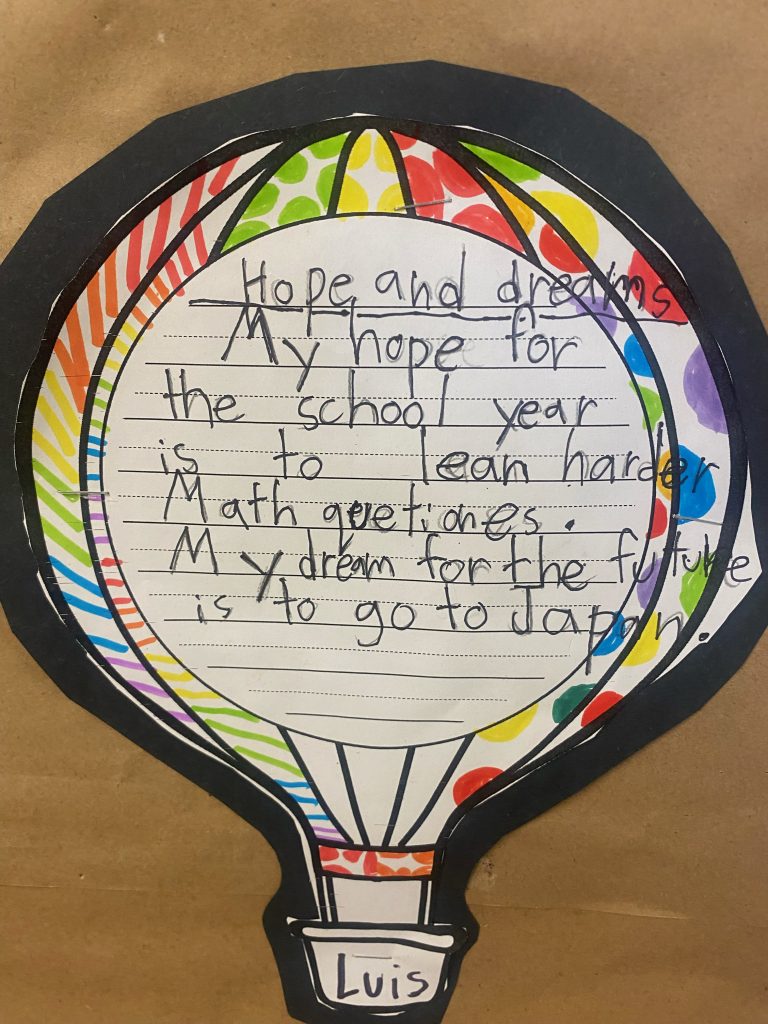 Hope and dreams
My hope for
the school year
is to lean harder
Math quetiones.
My dream for the future
is to go to Japan.
Luis